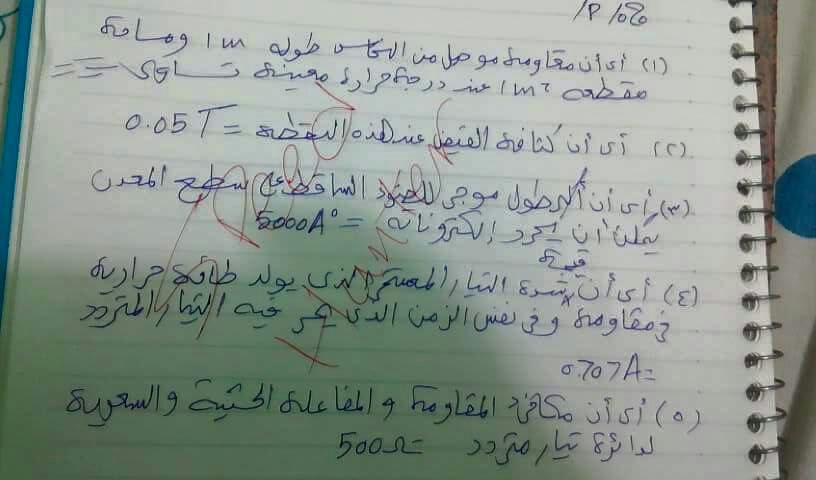 (١) أى أن مقاومة موصل من النحاس طوله 1m ومساحة
مقطعه 1m² عند درجة حرارة معينة تساوى
(٢) أى أن كثافة الفيض عند هذه النقطة = 0.05T
(٣) أى أن أكبر طول موجى للضوء الساقط على سطح المعدن
يمكن أن يحرر إلكتروناته = 5000A°
(٤) أى أن قيمة شدة التيار المستمر الذى يولد طاقة حرارية
فى مقاومة و فى نفس الزمن الذى يمر فيه التيار المتردد
= 0.707A
(٥) أى أن مكافئ المقاومة و المفاعلة الحثية والسعوية
لدائرة تيار متردد = 500Ω